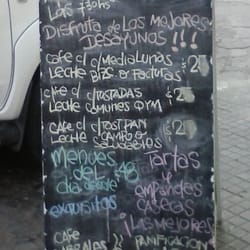 Las 730hs
Disfruta de los mejores
desayunos!!!
Cafe c/ c/medialunas
Leche Bzs o facturas $25
Cafe c/ c/tostadas
Leche comunes DYM $25
Cafe c/ c/tostpan
Leche campo o $25
Menues
del 48
dia desde
exquisitos
Tartas
y
empanadas
caseras
¡Las mejores
Cafe
Panificacion